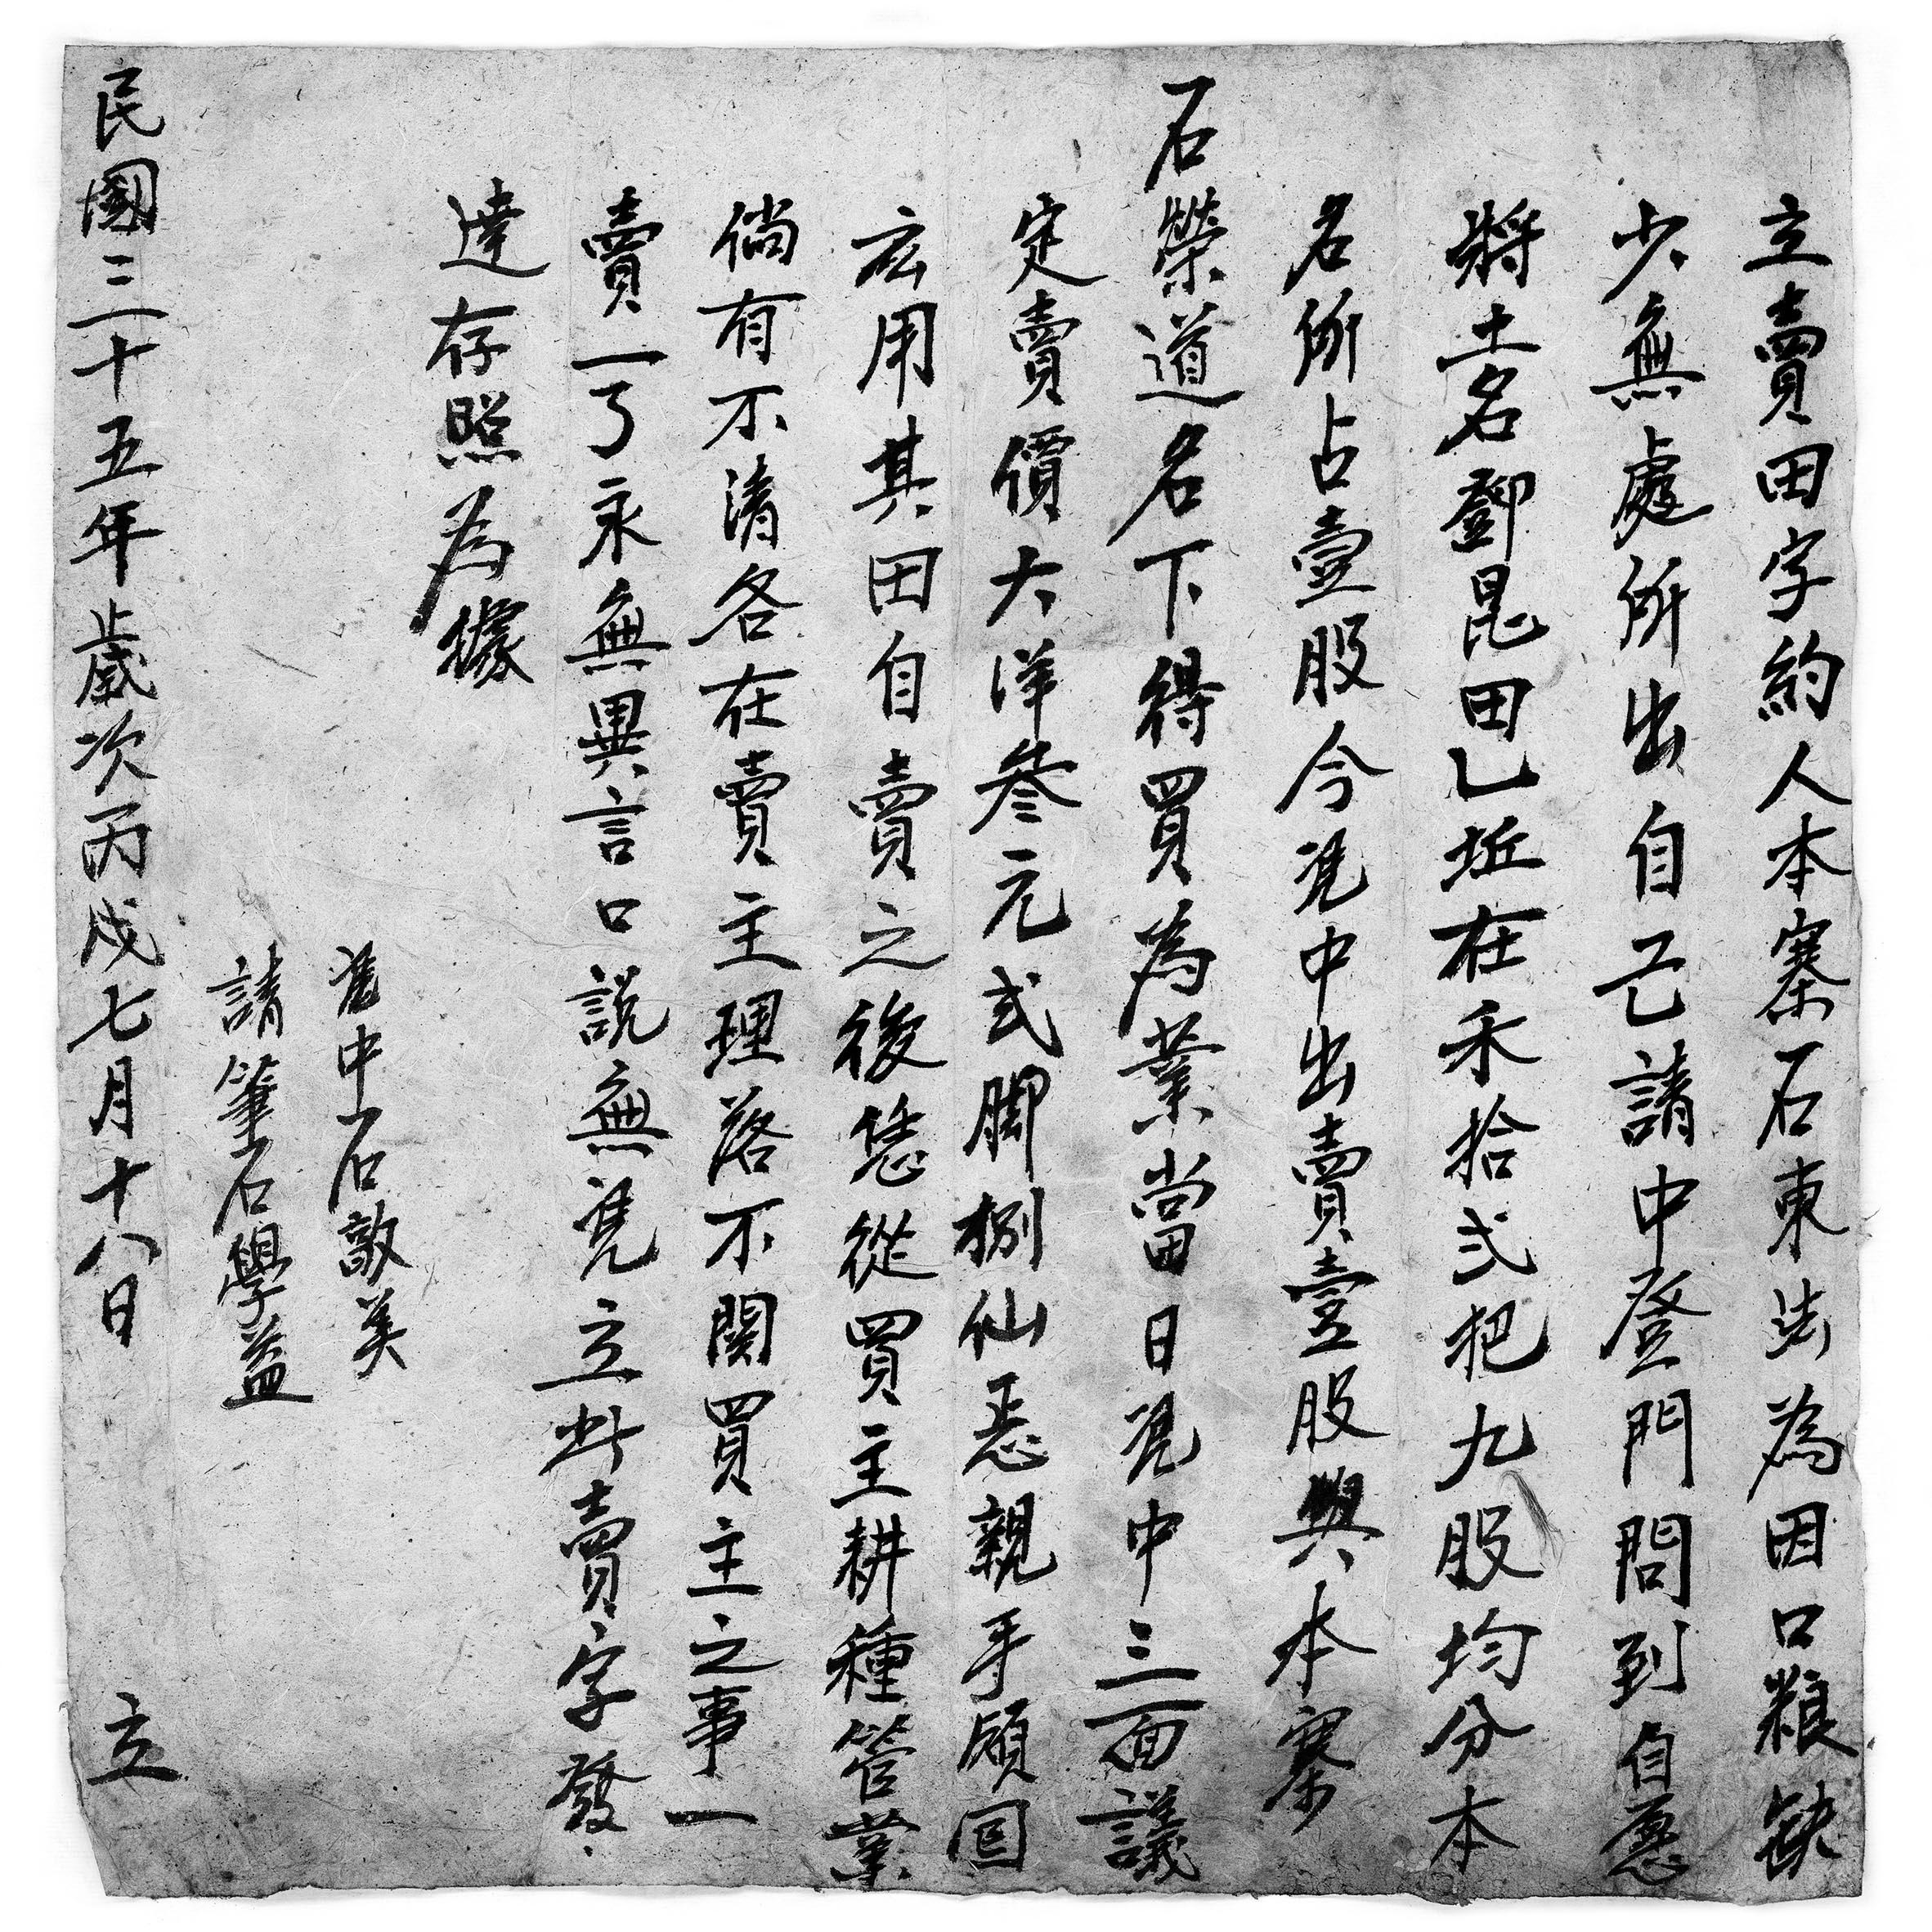 立賣田字約人本寨石東法為因口粮缺
少無處所出自己請中登門問到自愿
將土名鄧昆田乚坵在禾拾弍把九股均分本
名所占壹股今凭中出賣壹股與本寨
石榮道名下得買為業當日凭中三面議
定賣價大洋叁元弍脚捌仙悪親手領囬
应用其田自賣之後恁從買主耕種管業
倘有不清各在賣主理落不関買主之事一
賣一了永無異言口説無凭立此賣字發
達存照為據
凭中石敦美
請筆石學益
民國三十五年歲次丙戌七月十八日 立